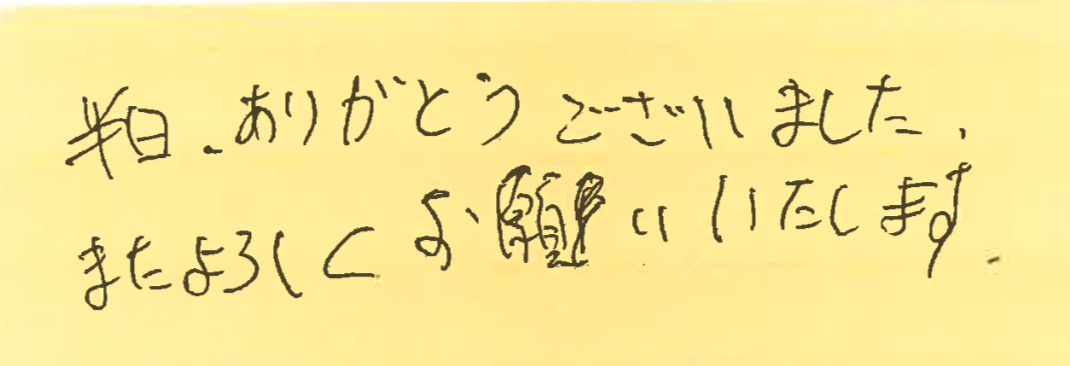 半日、ありがとうございました、
またよろしくお願いいたします.